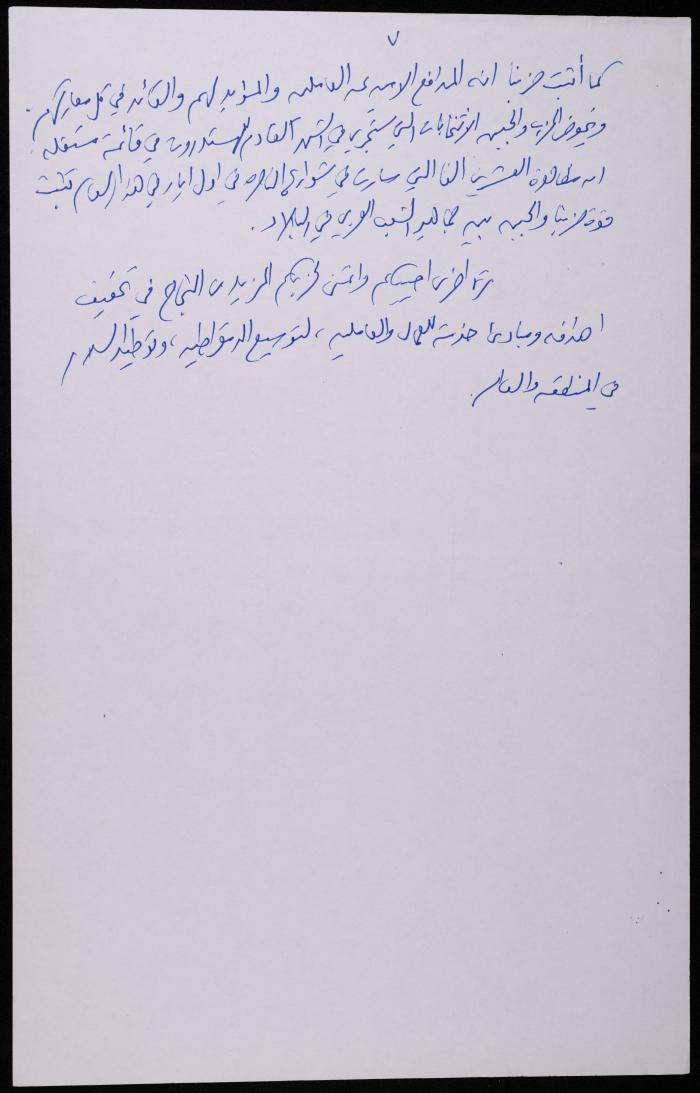 ٧
كما أثبت حزبنا انه المدافع الامين عن العاملين والمؤيد لهم والقائد في كل معاركهم.
ويخوض الحزب والجبهة الانتخابات التي ستجري في الشهر القادم للهستدروت في قائمة مستقلة
ان مظاهرة العشرين الفا التي سارت في شوارع الناصرة في اول ايار في هذا العام تثبت
قوة حزبنا والجبهة بين جماهير الشعب العربي في البلاد.
مرة اخرى احييكم واتمنى لحزبكم المزيد من النجاح في تحقيق
اهدافه ومبادئه خدمة للعمال والعاملين، لتوسيع الدمقراطية، وتوطيد السلام
في المنطقة والعالم.